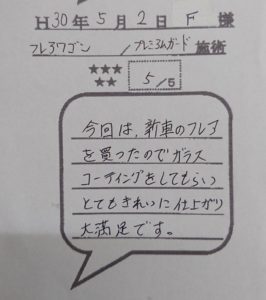 H30年5月2日 F 様
フレアワゴン / プレミアムガード 施術
★★★
★★ 5/5
今回は、新車のフレア
を買ったのでガラス
コーティングをしてもらい
とてもきれいに仕上がり
大満足です。